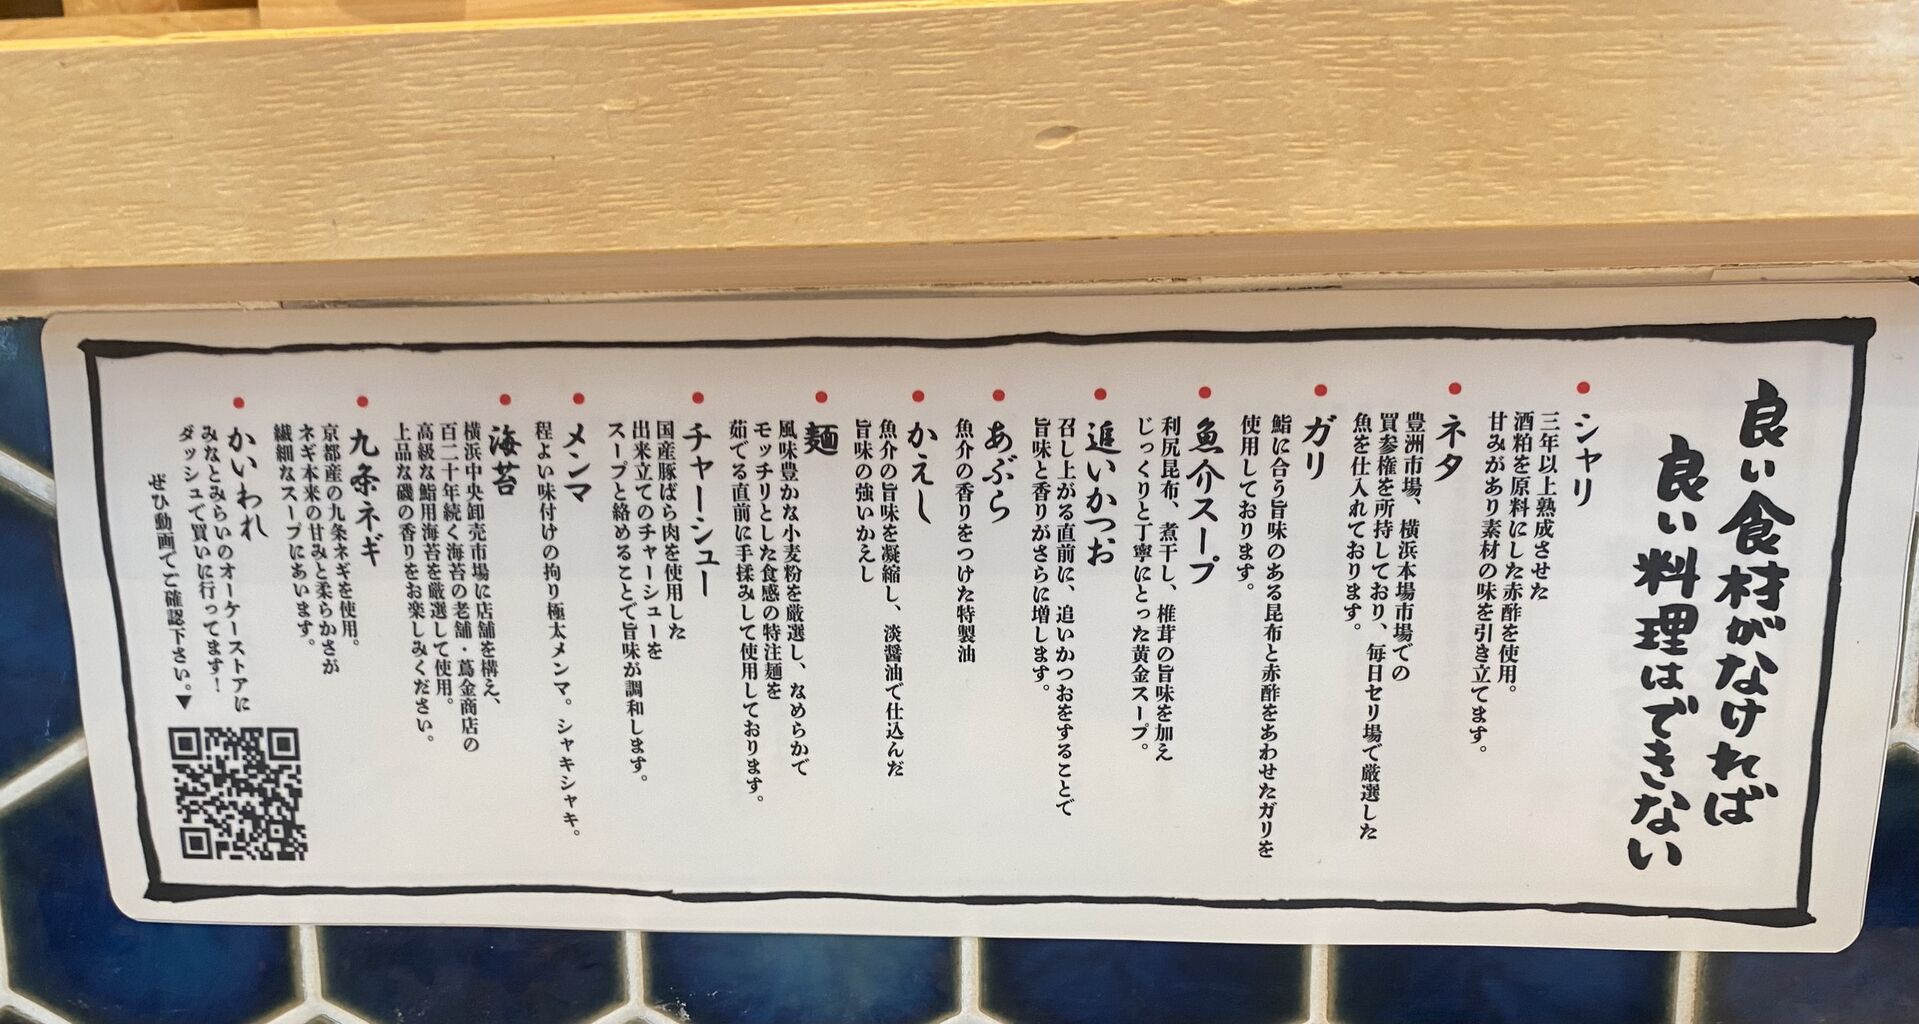 良い食材がなければ
良い料理はできない
シャリ
三年以上熟成させた
酒粕を原料にした赤酢を使用。
甘みがあり素材の味を引き立てます。
ネタ
豊洲市場、横浜本場市場での
買参権を所持しており、毎日セリ場で厳選した
魚を仕入れております。
ガリ
鮨に合う旨味のある昆布と赤酢をあわせたガリを
使用しております。
魚介スープ
利尻昆布、煮干し、椎茸の旨味を加え
じっくりと丁寧にとった黄金スープ。
追いかつお
召し上がる直前に、追いかつおをすることで
旨味と香りがさらに増します。
あぶら
魚介の香りをつけた特製油
かえし
魚介の旨味を凝縮し、淡醤油で仕込んだ
旨味の強いかえし
麺
風味豊かな小麦粉を厳選し、なめらかで
モッチリとした食感の特注麺を
茹でる直前に手揉みして使用しております。
チャーシュー
国産豚ばら肉を使用した
出来立てのチャーシューを
スープと絡めることで旨味が調和します。
メンマ
程よい味付けの拘り極太メンマ。シャキシャキ。
海苔
横浜中央卸売市場に店舗を構え、
百二十年続く海苔の老舗・蔦金商店の
高級な鮨用海苔を厳選して使用。
上品な磯の香りをお楽しみください。
九条ネギ
京都産の九条ネギを使用。
ネギ本来の甘みと柔らかさが
繊細なスープにあいます。
かいわれ
みなとみらいのオーケーストアに
ダッシュで買いに行ってます!
ぜひ動画でご確認下さい。▼